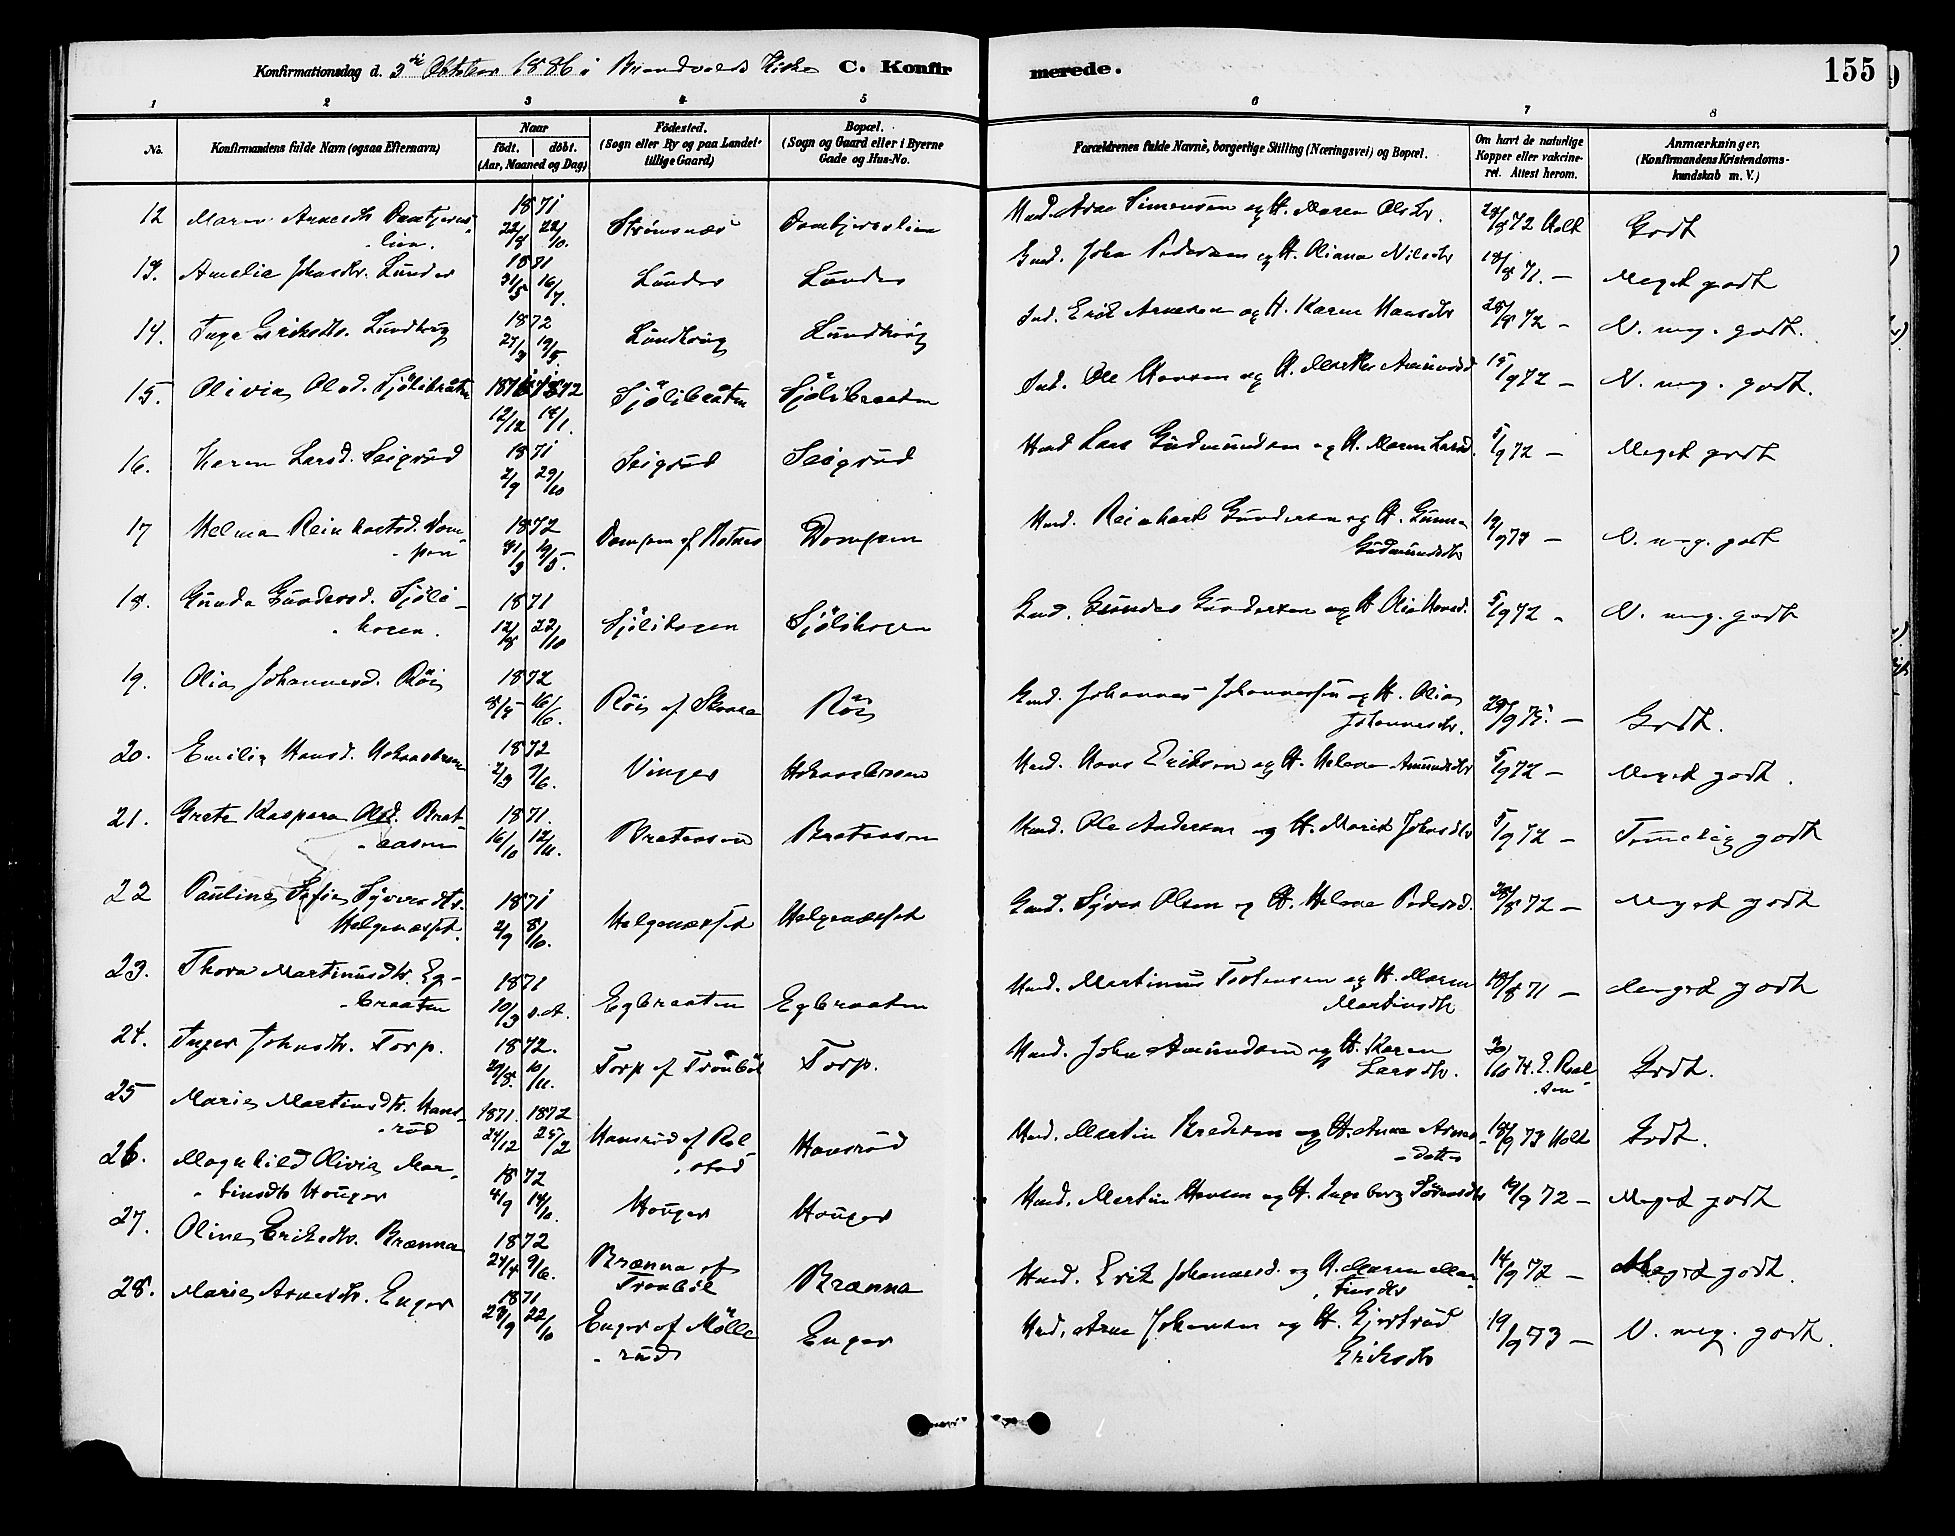 Konfirmationsdag d. 3die Oktober 1886 i Brandvolds Kirke C. Konfirmerede. 155
1 2 3 4 5 6 7 8
No. Konfirmandens fulde Navn (ogsaa Efternavn) Naar født. døbt. (Aar, Maaned og Dag) Födested. (Sogn eller By og paa Landet tillige Gaard) Bopæl. (Sogn og Gaard eller i Byerne Gade og Hus-No. Forældrenes fulde Navne, borgerlige Stilling (Næringsvei) og Bopæl. Om havt de naturlige Kopper eller vakcineret. Attest herom. Anmærkninger. (Konfirmandens Kristendomskundskab m. V.)
12 Maren Arnesdtr 1871 22/8 22/10. Strömsnæs Arne Simensen og H. Maren Olsdtr. 28/8 72 Holt Godt
13. Amelie Johnsdtr. Lunder 1871 31/5 16/7. Lunder Lunder Gmd. John Pedersen og H. Oliana Nilsdtr 18/8 71. – Meget godt
14. Inga Eriksdtr. Lundkrog 1872 27/3 19/5. Lundkrog Lundkrog Ind. Erik Arnesen og H. Karen Hansdtr 28/8 72 – N. meg. godt.
15. Olivia Olsd. Sjölibråten 1871 1872 12/12 18/1. Sjölibråten Sjölibraaten Ind. Ole Hansen og H. Marthe Amundsd 15/9 72 – N. meg. godt.
16. Karen Larsd. Seigrud 1871 2/9 29/10 Seigrud Seigrud Hmd Lars Gudmundsen og H. Maren Larsd. 5/9 72 – Meget godt
17 Helma Reinhartsd. Dompen 1872 31/3 19/5. Dompen af Rotnes Dompen Hmd. Reinhart Gundersen og H. Gunna Gudmundsdtr 19/9 73 – N. meg. godt
18. Gunda Gundersd. Sjölihogen. 1871 12/8 22/10 Sjölihogen Sjölihogen Gmd. Gunder Gundersen og H. Olia Hansd. 5/9 72 – N. meg. godt
19. Olia Johannesd. Röis 1872 8/5 16/6. Röis af Skara Röis Gmd. Johannes Johannessen og H. Olia Johannesdtr. 29/9 75. – Godt.
20. Emilie Hansd. 1872 2/3 9/6. Vinger Hmd. Hans Eriksen og H. Helene Amundsdtr 5/9 72 – Meget godt.
21. Grete Kaspara Olsd. Bråtaasen 1871. 16/10 12/11. Bråtaasen Bråtaasen Hmd. Ole Andersen og H. Marit Johnsdtr 5/9 72 – Temelig godt
22 Pauline Sofie Syversdtr. Helgenæsset. 1871 2/9 8/10. Helgenæsset Helgenæsset Gmd. Syver Olsen og H. Helene Pedersd. 28/8 72 – Meget godt
23. Thora Martinusdtr. Egbraaten 1871 10/3 s.A. Egbraaten Egbraaten Hmd. Martinus Torstensen og H. Maren Martinsdtr 18/8 71 – Meget godt
24. Inger Johnsdtr. Torp. 1872. 29/8. 10/11. Torp af Tronböl Torp. Hmd. John Amundsen og H. Karen Larsdtr. Godt.
25 Marie Martinsdtr. Hansrud 1871. 1872 24/12 25/2 Hansrud af Rolstad Hansrud Hmd. Martin Pedersen og H. Anne Arnesdatter 18/9 73 Holt Godt.
26. Magnhild Olivia Martinsdtr Houger 1872 4/9 14/10. Houger Houger Hmd. Martin Hansen og H. Ingeborg Sörensdtr 14/9 72 – Meget godt
27. Oline Eriksdtr. Brænna 1872 24/4 9/6. Brænna af Tronböl Brænna Hmd. Erik Johannesd. og H. Maren Martinsdtr 14/9 72 – Meget godt.
28. Marie Arnesdtr. Enger 1871 23/9 22/10 Enger af Möllerud Enger Hmd. Arne Johansen og H. Gjertrud Eriksdtr 19/9 73 – N. meg. godt.